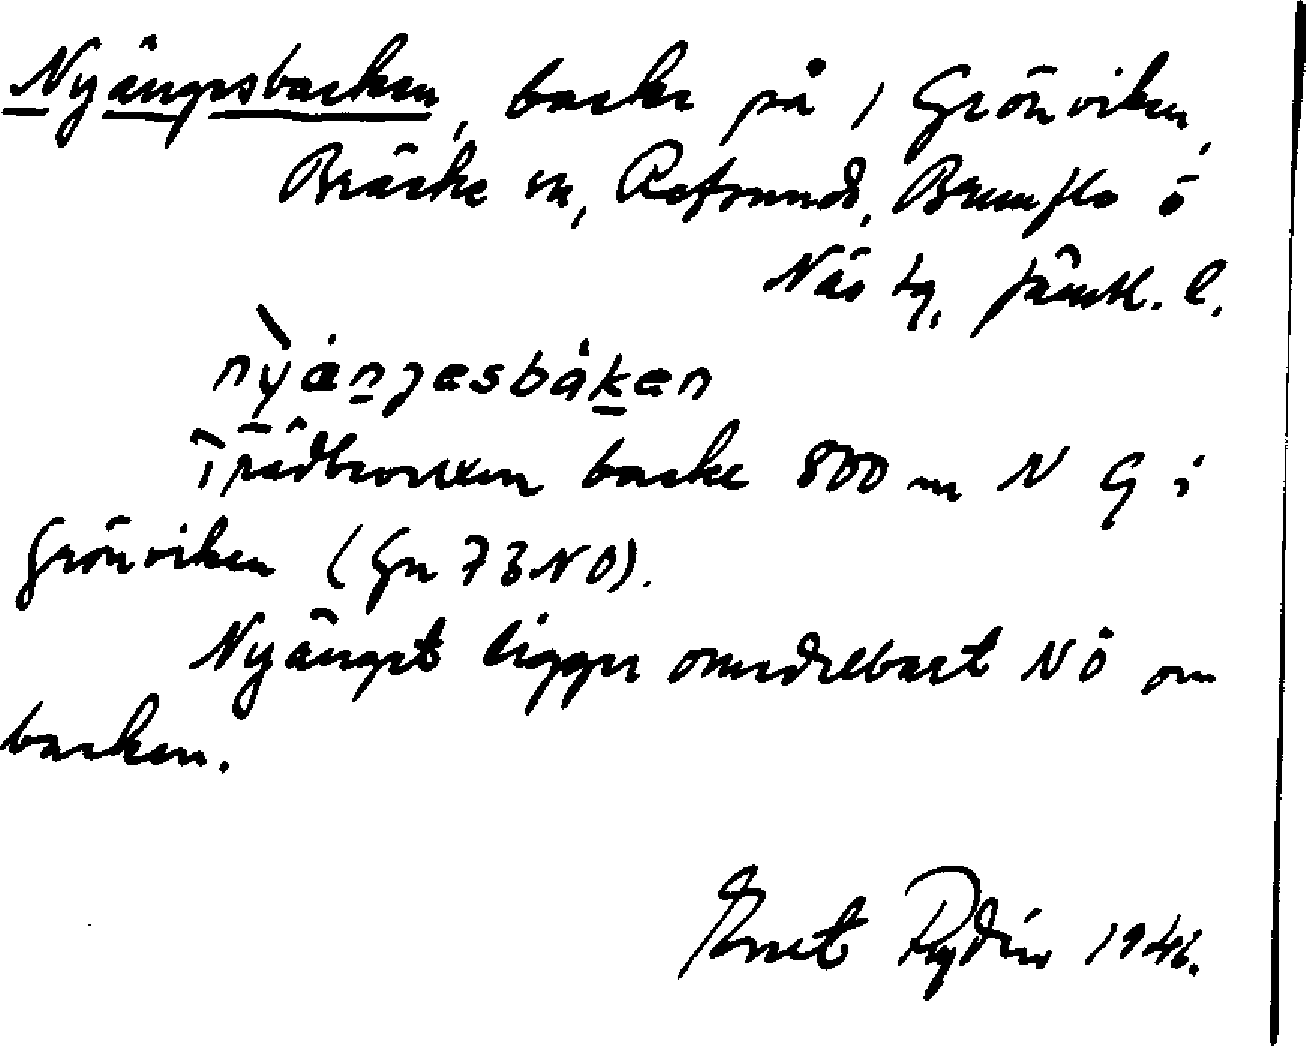 Nyängesbacken, backe på 1 Grönviken,
Bräcke sn, Refsunds, Brunflo o
Näs tg, Jämtl. l.
nyængesbaken
Trädbevuxen backe 800 m N G i
Grönviken (Gn 73 NO).
Nyänget ligger omedelbart NÖ om
backen.
Knut Rydin 1946.